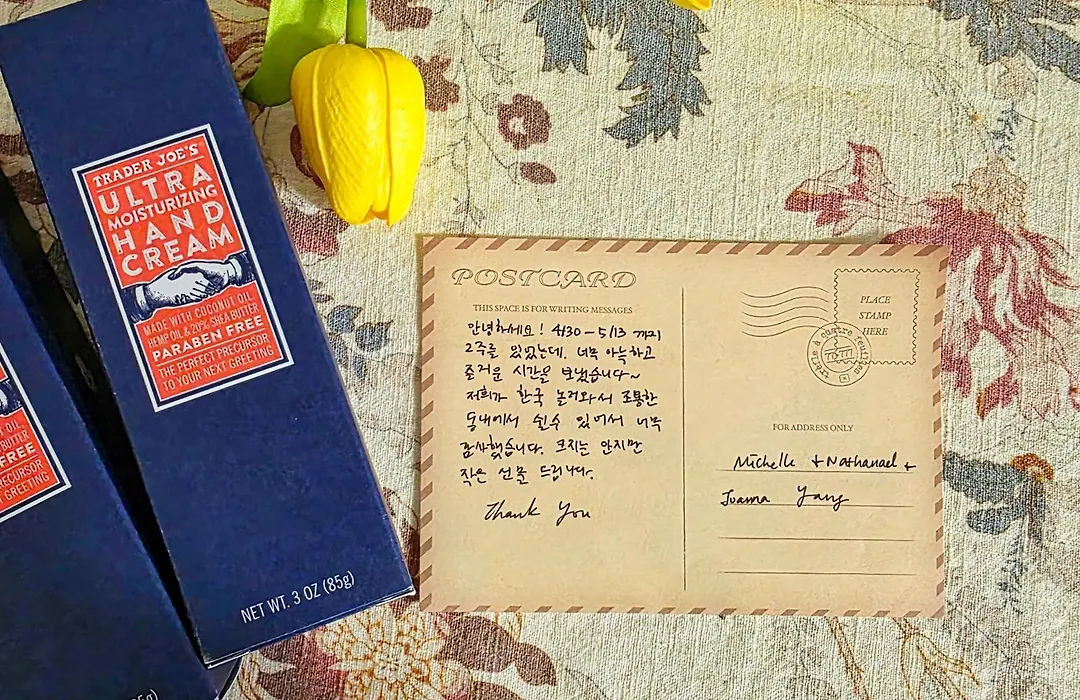 TRADER JOE'S
ULTRA
MOISTURIZING
HAND
CREAM
MADE WITH COCONUT OIL,
HEMP OIL & 20% SHEA BUTTER
PARABEN FREE
THE PERFECT PRECURSOR
TO YOUR NEXT GREETING
NET WT. 3 OZ (85g)
OIL,
BUTTER
FREE
PRECURSOR
GREETING
POSTCARD
THIS SPACE IS FOR WRITING MESSAGES
안녕하세요! 4/30 – 5/13 까지
2주를 있었는데, 너무 아늑하고
즐거운 시간을 보냈습니다~
저희가 한국 놀러와서 조용한
동네에서 쉴수 있어서 너무
감사했습니다. 크지는 안지만
작은 선물 드립니다.
Thank You
PLACE
STAMP
HERE
FOR ADDRESS ONLY
Michelle + Nathanael +
Joanna Yang